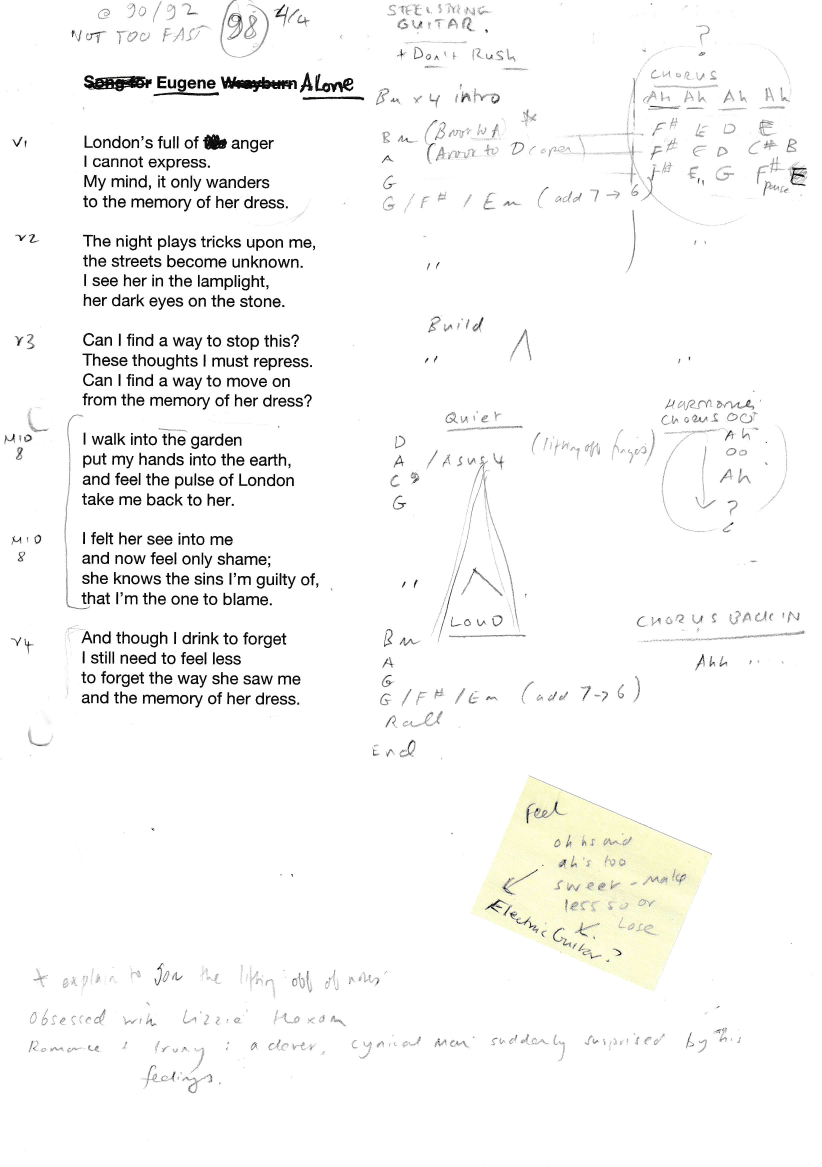 @ 90/92
NOT TOO FAST
98 4/4
STEEL STRING
GUITAR.
+ Don't Rush
Song for Eugene Wrayburn Alone
Bm x 4 intro
?
CHORUS
Ah Ah Ah Ah
F# E D E
F# E D C# B
F# E,, G F# E
pause
V1
London's full of anger
I cannot express.
My mind, it only wanders
to the memory of her dress.
Bm
A
G
G / F# / Em (add 7 → 6)
V2
The night plays tricks upon me,
the streets become unknown.
I see her in the lamplight,
her dark eyes on the stone.
"
"
V3
Can I find a way to stop this?
These thoughts I must repress.
Can I find a way to move on
from the memory of her dress?
Build
"
"
MID
8
I walk into the garden
put my hands into the earth,
and feel the pulse of London
take me back to her.
Quiet
D
A / Asus4 (lifting off fingers)
C9
G
HARMONIES
CHORUS OO
Ah
OO
Ah
?
MID
8
I felt her see into me
and now feel only shame;
she knows the sins I'm guilty of,
that I'm the one to blame.
"
LOUD
CHORUS BACK IN
V4
And though I drink to forget
I still need to feel less
to forget the way she saw me
and the memory of her dress.
Bm
A
G
G / F# / Em (add 7 → 6)
Rall
End
Ahh " ..
Feel
ohhs and
ah's too
sweet - make
less so or
lose
Electric Guitar?
* explain to Jon the lifting off of notes
Obsessed with Lizzie Hexam
Romance & Irony : a clever, cynical man suddenly surprised by his
feelings.